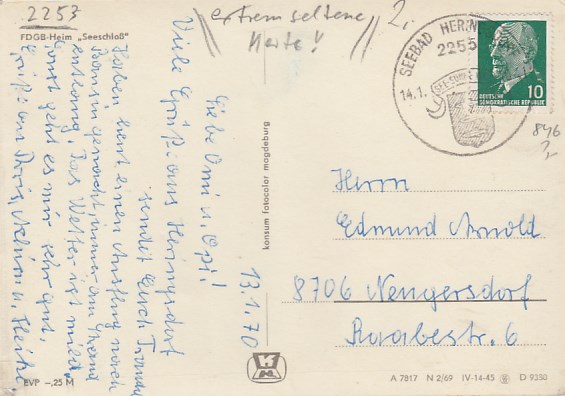 2253
"extrem seltene
Karte!"
2,-
FDGB-Heim „Seeschloß"
SEEBAD HERIN
2255
14.1.
DEUTSCHE
DEMOKRATISCHE REPUBLIK
10
846
13.1.70
Liebe Omi u. Opi!
Viele Grüße aus Heringsdorf
sendet Euch
Haben heut einen Ausflug nach
Bansin gemacht, immer am Strand
entlang. Das Wetter ist mild.
Sonst geht es mir sehr gut.
Grüße an Achim u. Heike.
konsum fotocolor magdeburg
Herrn
Edmund Arnold
8706 Neugersdorf
Raabestr. 6
EVP –,25 M
A 7817 N 2/69 IV-14-45 D 9350